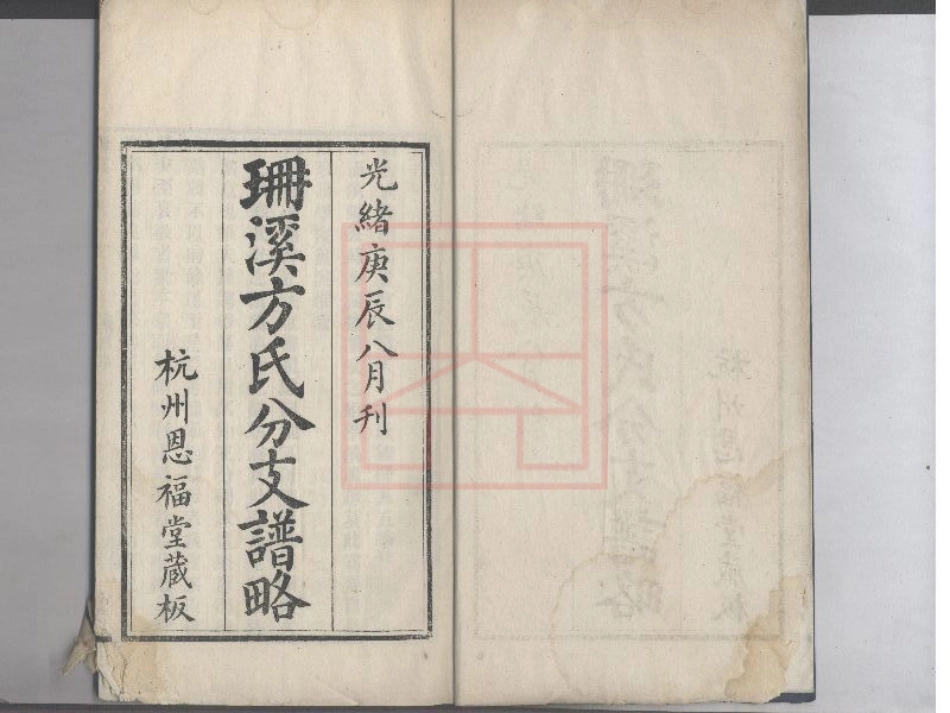 光緒庚辰八月刊
珊溪方氏分支譜略
杭州恩福堂藏板